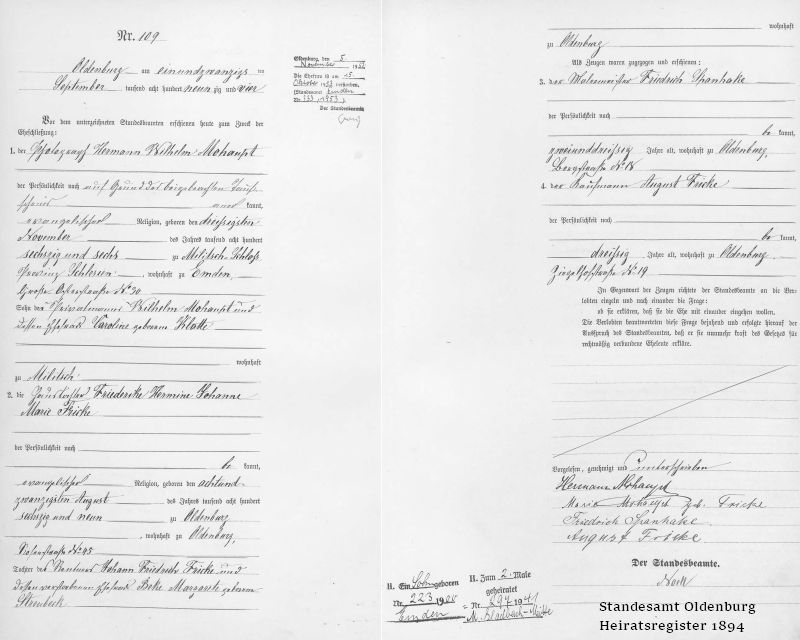 Nr. 109
Oldenburg am einundzwanzigsten
September tausend acht hundert neunzig und vier
Vor dem unterzeichneten Standesbeamten erschienen heute zum Zweck der
Eheschließung:
1. der Photograph Hermann Wilhelm Mohaupt
der Persönlichkeit nach auf Grund des beigebrachten Tauf-
scheins anerkannt,
evangelischer Religion, geboren den dreissigsten
November des Jahres tausend acht hundert
sechszig und sechs zu Militsch Schloss
Provinz Schlesien, wohnhaft zu Emden
Große Osterstraße No 30
Sohn des Privatmanns Wilhelm Mohaupt und
dessen Ehefrau Caroline geborenen Klatte
wohnhaft
zu Militsch
2. die Haustochter Friederike Hermine Johanne
Marie Fricke
der Persönlichkeit nach
bekannt,
evangelischer Religion, geboren den achtund-
zwanzigsten August des Jahres tausend acht hundert
sechszig und neun zu Oldenburg
, wohnhaft zu Oldenburg,
No 45
Tochter des Rentners Johann Friedrich Fricke und
dessen verstorbenen Ehefrau Beke Margarete geborenen
Oldenburg, den 5
November 1953
Die Ehefrau ist am 15
Oktober 1953 verstorben
(Standesamt Emden
Nr. 733/1953)
Der Standesbeamte
H. Ein Sohn geboren
Nr. 223 1908
Emden
H. Zum 2. Male
geheiratet
Nr. 897/1941
M. Gladbach-Mitte
wohnhaft
zu Oldenburg
Als Zeugen waren zugezogen und erschienen:
3. der Malermeister Friedrich Spanhake
der Persönlichkeit nach
bekannt,
zweiunddreissig Jahre alt, wohnhaft zu Oldenburg,
Bergstraße No 18
4. der Kaufmann August Fricke
der Persönlichkeit nach
bekannt,
dreissig Jahre alt, wohnhaft zu Oldenburg
Ziegelhofstraße No 19
In Gegenwart der Zeugen richtete der Standesbeamte an die Ver-
lobten einzeln und nach einander die Frage:
ob sie erklären, daß sie die Ehe mit einander eingehen wollen.
Die Verlobten beantworteten diese Frage bejahend und erfolgte hierauf der
Ausspruch des Standesbeamten, daß er sie nunmehr kraft des Gesetzes für
rechtmäßig verbundene Eheleute erkläre.
Vorgelesen, genehmigt und unterschrieben
Hermann Mohaupt
Marie Mohaupt geb. Fricke
Friedrich Spanhake
August Fricke
Der Standesbeamte.
Standesamt Oldenburg
Heiratsregister 1894